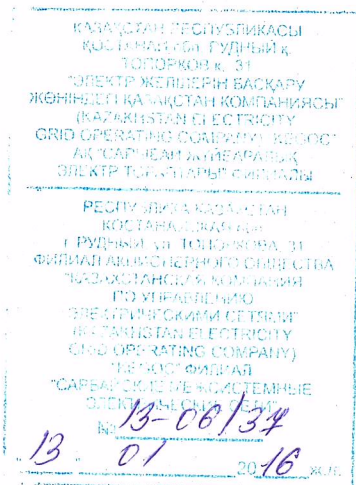 ҚАЗАҚСТАН РЕСПУБЛИКАСЫ
ҚОСТАНАЙ обл. РУДНЫЙ қ.
ТОПОРКОВ к. 31
"ЭЛЕКТР ЖЕЛІЛЕРІН БАСҚАРУ
ЖӨНІНДЕГІ ҚАЗАҚСТАН КОМПАНИЯСЫ"
(KAZAKHSTAN ELECTRICITY
GRID OPERATING COMPANY) "KEGOC"
АҚ "САРЫБАЙ ЖҮЙЕАРАЛЫҚ
ЭЛЕКТР ТОРАПТАРЫ" ФИЛИАЛЫ
РЕСПУБЛИКА КАЗАХСТАН
КОСТАНАЙСКАЯ обл.
г. РУДНЫЙ ул. ТОПОРКОВА, 31
ФИЛИАЛ АКЦИОНЕРНОГО ОБЩЕСТВА
"КАЗАХСТАНСКАЯ КОМПАНИЯ
ПО УПРАВЛЕНИЮ
ЭЛЕКТРИЧЕСКИМИ СЕТЯМИ"
(KAZAKHSTAN ELECTRICITY
GRID OPERATING COMPANY)
"KEGOC" ФИЛИАЛ
"САРБАЙСКИЕ МЕЖСИСТЕМНЫЕ
ЭЛЕКТРИЧЕСКИЕ СЕТИ"
№ 13-06/37
13 01 2016 ж./г.